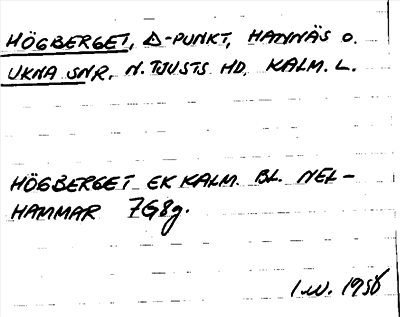 HÖGBERGET, Δ-PUNKT, HANNÄS O.
UKNA SNR, N. TJUSTS HD, KALM. L.
HÖGBERGET EK KALM. BL. NEL-
HAMMAR 7G8g.
I.W. 1950